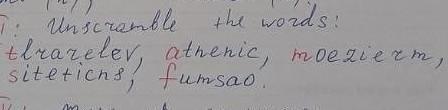 T: Unscramble the words:
tlrarelev, athenic, moezierm,
siteticns, fumsao.